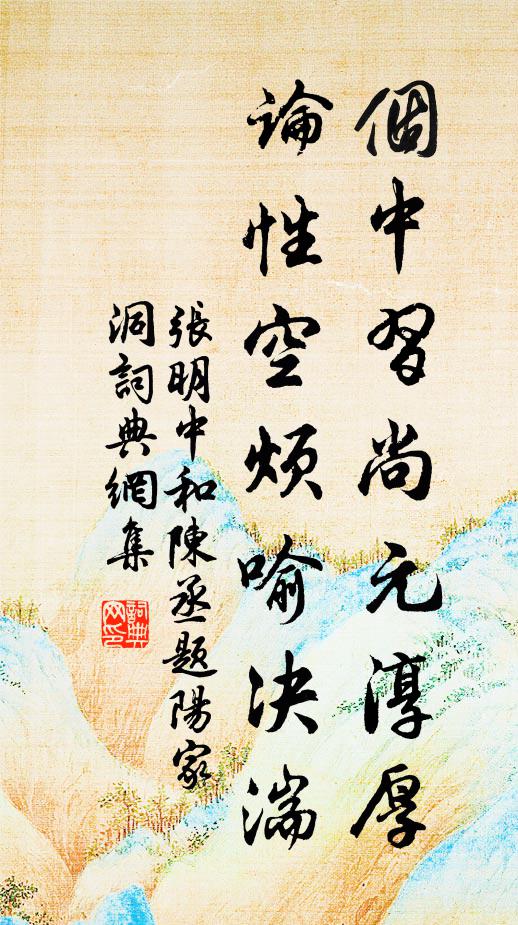 個中習尚元淳厚
論性空煩喻決湍
張明中和陳丞題陽家
洞詞典網集
詞典網印